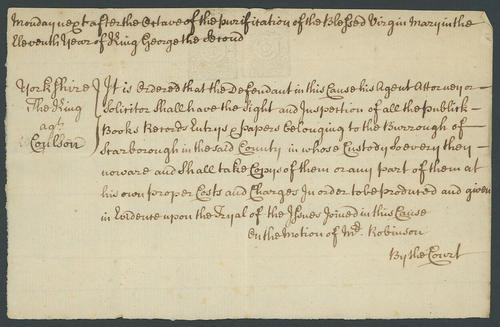 Monday next after the Octave of the purification of the Blessed Virgin Mary in the
Eleventh Year of King George the Second
Yorkshire
The King
agt
Coulson
It is Ordered that the Defendant in this Cause his Agent Attorney or
Solicitor Shall have the Sight and Inspection of all the publick
Books Records Entrys & papers belonging to the Burrough of
Scarborough in the said County in whose Custody soever they
now are and Shall take Copys of them or any part of them at
his own proper Costs and Charges In order to be produced and given
in Evidence upon the Tryal of the Issues Joined in this Cause
On the Motion of Mr. Robinson
By the Court